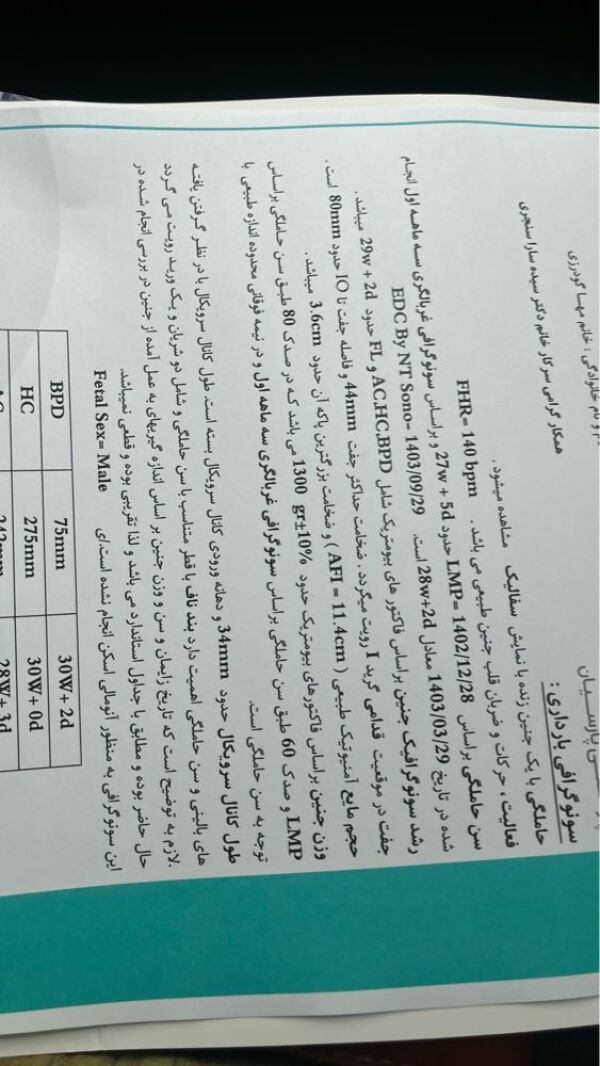 م و نام خانوادگی : خانم مهسا گودرزی
همکار گرامی سرکار خانم دکتر سیده سارا سنجری
ـی پارسیان
سونوگرافی بارداری :
حاملگی با یک جنین زنده با نمایش سفالیک مشاهده میشود .
فعالیت ، حرکات و ضربان قلب جنین طبیعی می باشد . FHR= 140 bpm
سن حاملگی براساس LMP= 1402/12/28 حدود 27w + 5d و براساس سونوگرافی غربالگری سه ماهه اول انجام
شده در تاریخ 1403/03/29 معادل 28w+2d است. EDC By NT Sono= 1403/09/29
رشد سونوگرافیک جنین براساس فاکتور های بیومتریک شامل AC,HC,BPD و FL حدود 29w + 2d میباشد .
جفت در موقعیت قدامی گرید I رویت میگردد . ضخامت حداکثر جفت 44mm و فاصله جفت تا IO حدود 80mm است .
حجم مایع آمنیوتیک طبیعی ( AFI = 11.4cm ) و ضخامت بزرگترین پاکه آن حدود 3.6cm میباشد.
وزن جنین براساس فاکتورهای بیومتریک حدود 1300 gr±10% می باشد که در صدک 80 طبق سن حاملگی براساس
LMP و صدک 60 طبق سن حاملگی براساس سونوگرافی غربالگری سه ماهه اول و در نیمه فوقانی محدوده اندازه طبیعی با
توجه به سن حاملگی است.
طول کانال سرویکال حدود 34mm و دهانه ورودی کانال سرویکال بسته است. طول کانال سرویکال با در نظر گرفتن یافته
های بالینی و سن حاملگی اهمیت دارد بند ناف با قطر متناسب با سن حاملگی و شامل دو شریان و یک ورید رویت می گردد
.لازم به توضیح است که تاریخ زایمان و سن و وزن جنین بر اساس اندازه گیریهای به عمل آمده از جنین در بررسی انجام شده در
حال حاضر بوده و مطابق با جداول استاندارد می باشد و لذا تقریبی بوده و قطعی نمیباشد.
این سونوگرافی به منظور آنومالی اسکن انجام نشده است./ی Fetal Sex= Male
BPD 75mm 30W+ 2d
HC 275mm 30W+ 0d
AC 242mm 28W+ 3d